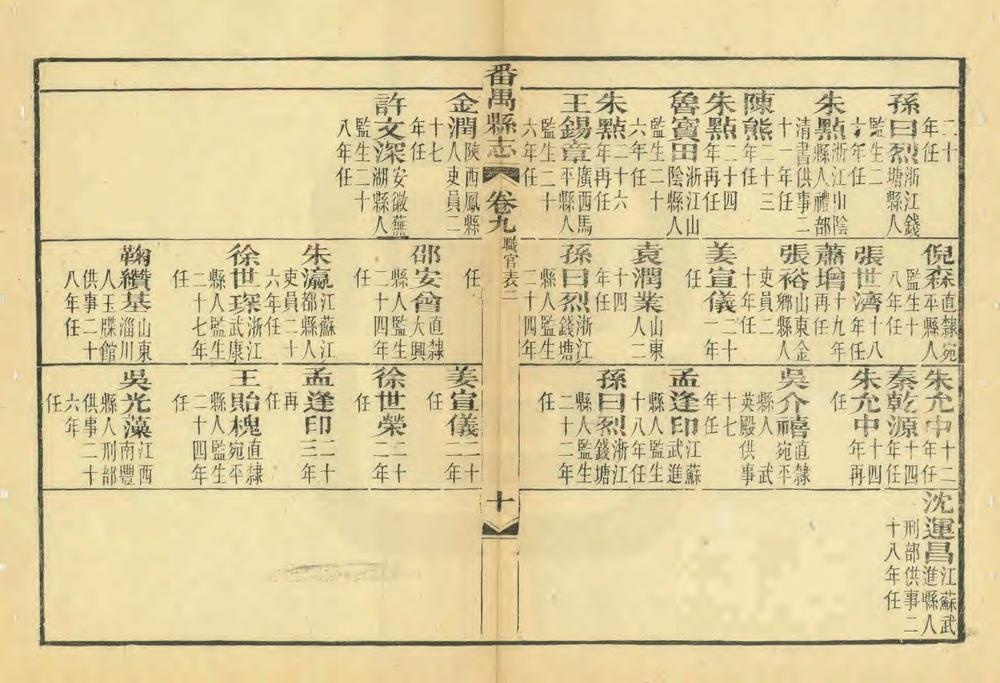 二十
年任
孫曰烈浙江錢
塘縣人
監生二
十年任
朱點浙江山陰
縣人禮部
清書供事二
十一年任
陳熊二十三
年任
朱點二十四
年再任
魯寶田浙江山
陰縣人
監生二十
六年任
朱點二十六
年再任
王錫章廣西馬
平縣人
監生二十
六年任
番禺縣志 卷九 職官表二 十
金潤陝西鳳縣
人吏員二
十七
年任
許文深安徽蕪
湖縣人
監生二十
八年任
倪森直隸宛
平縣人
監生十
八年任
張世濟十八
年任
蕭增十九年
再任
張裕山東金
鄉縣人
吏員二
十年任
姜宣儀二十
一年
任
袁潤業山東
人二
十四
年任
孫曰烈浙江
錢塘
縣人監生
二十四年
任
邵安曾直隸
大興
縣人監生
二十四年
任
朱瀛江蘇江
都縣人
吏員二十
六年任
徐世琛浙江
武康
縣人監生
二十七年
任
鞠纘基山東
淄川
人玉牒館
供事二十
八年任
朱允中十二
年任
秦乾源十四
年任
朱允中十四
年再
任
吳介禧直隸
宛平
縣人武
英殿供事
十七
年任
孟逢印江蘇
武進
縣人監生
十八年任
孫曰烈浙江
錢塘
縣人監生
二十二年
任
姜宣儀二十
二年
任
徐世榮二十
二年
任
孟逢印二十
三年
再
任
王貽槐直隸
宛平
縣人監生
二十四年
任
吳光藻江西
南豐
縣人刑部
供事二十
六年
任
沈運昌江蘇武
進縣人
刑部供事二
十八年任